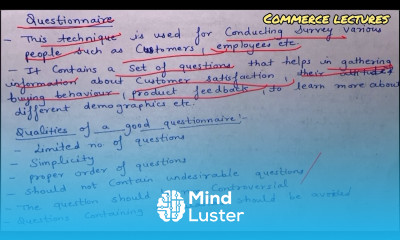 COMMERCE LECTURES
Questionnaire
- This technique is used for Conducting Survey various
people such as Customers, employees etc
- It Contains a set of questions that helps in gathering
information about Customer satisfaction, their attitudes
buying behaviour, product feedback, to learn more about
different demographics etc.
Qualities of a good questionnaire:-
- Limited no of questions
- Simplicity
- proper order of questions
- Should not Contain undesirable questions
- The question should Controversial
- Questions Containing should be avoided
Mind
Luster